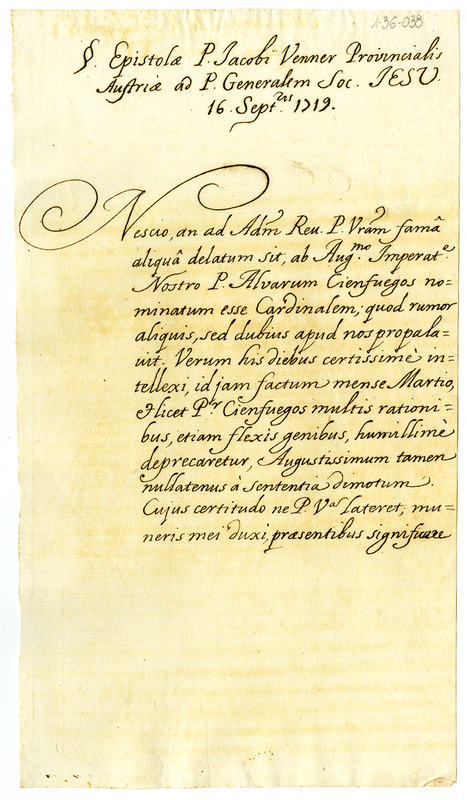 1-36-038
§. Epistolæ P. Jacobi Venner Provincialis
Austriæ ad P. Generalem Soc. JESU.
16. Sept.bris 1719.
Nescio, an ad Adm̃ Reu. P. Vram̃ famâ
aliquâ delatum sit, ab Aug.mo Imperat.e
Nostro P. Alvarum Cienfuegos no=
minatum esse Cardinalem; quod rumor
aliquis, sed dubius apud nos propala=
uit. Verum his diebus certissimè in=
tellexi, id jam factum mense Martio,
& licet P.r Cienfuegos multis rationi=
bus, etiam flexis genibus, humillimè
deprecaretur, Augustissimum tamen
nullatenus à sententia dimotum.
Cujus certitudo ne P. V.am lateret, mu=
neris mei duxi, præsentibus significare